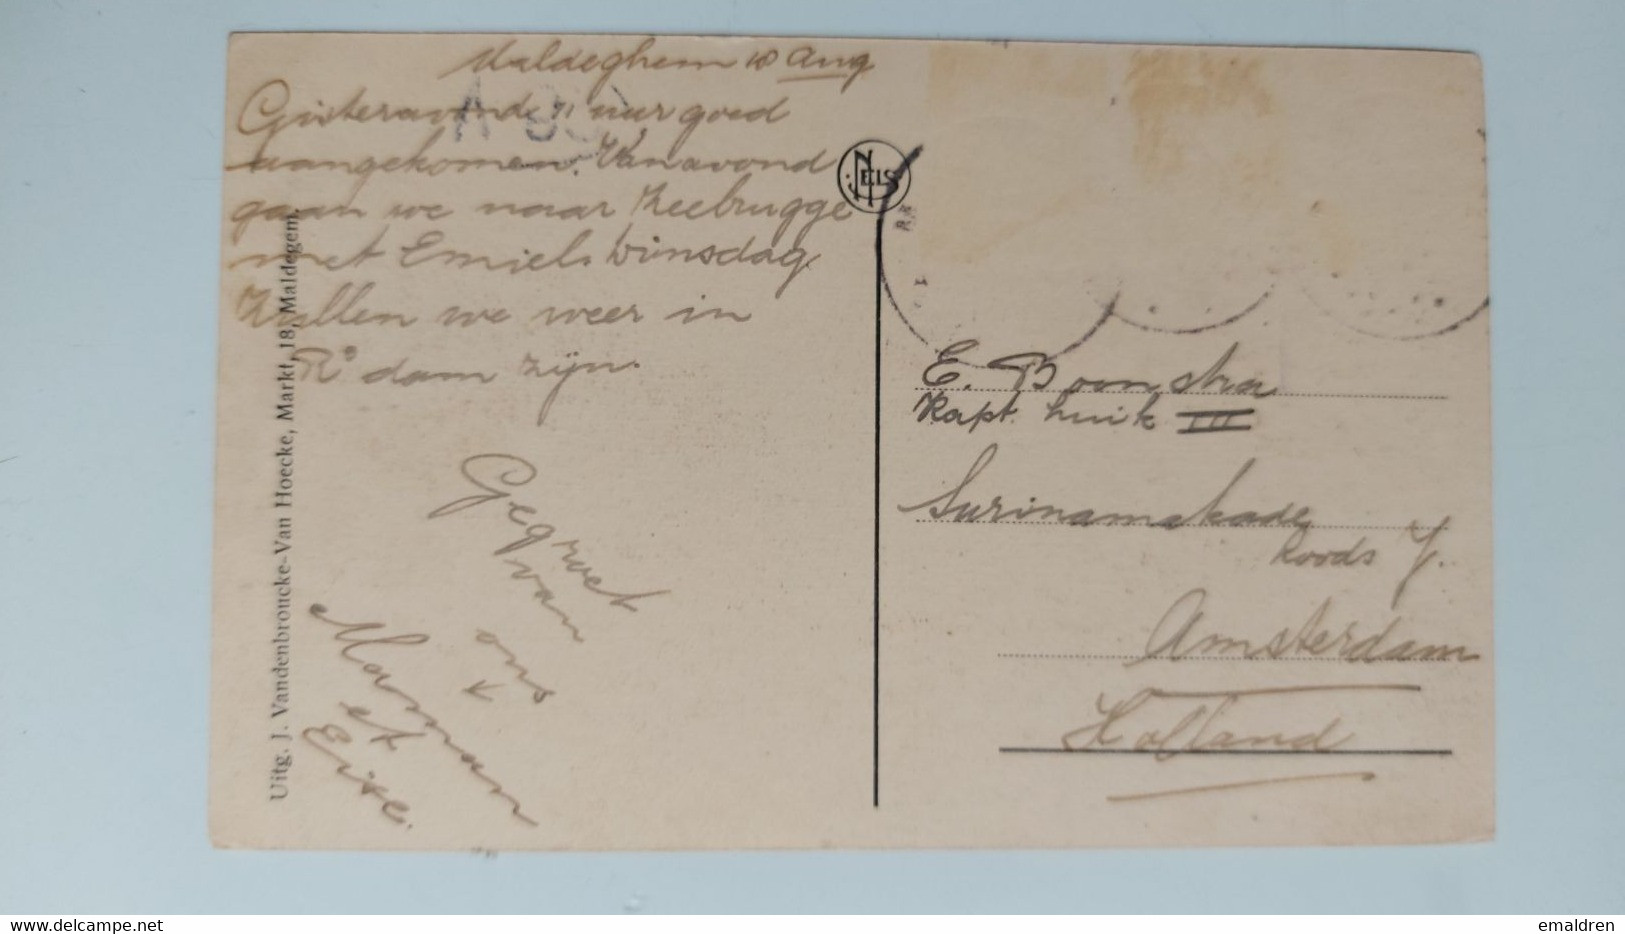 Maldeghem 18 Aug
Gisteravond 11 uur goed
aangekomen. Vanavond
gaan we naar Zeebrugge
met Emiel. Wunsdag
Zullen we weer in
R dam zijn.
Gegroet
van
ons
Maman
et
Eise.
Uitg. J. Vandenbroucke-Van Hoecke, Markt, 18, Maldegem.
NELS
E. Boonstra
Kapt. Luik III
Surinamekade
Loods
Amsterdam
Holland
www.delcampe.net
emaldren